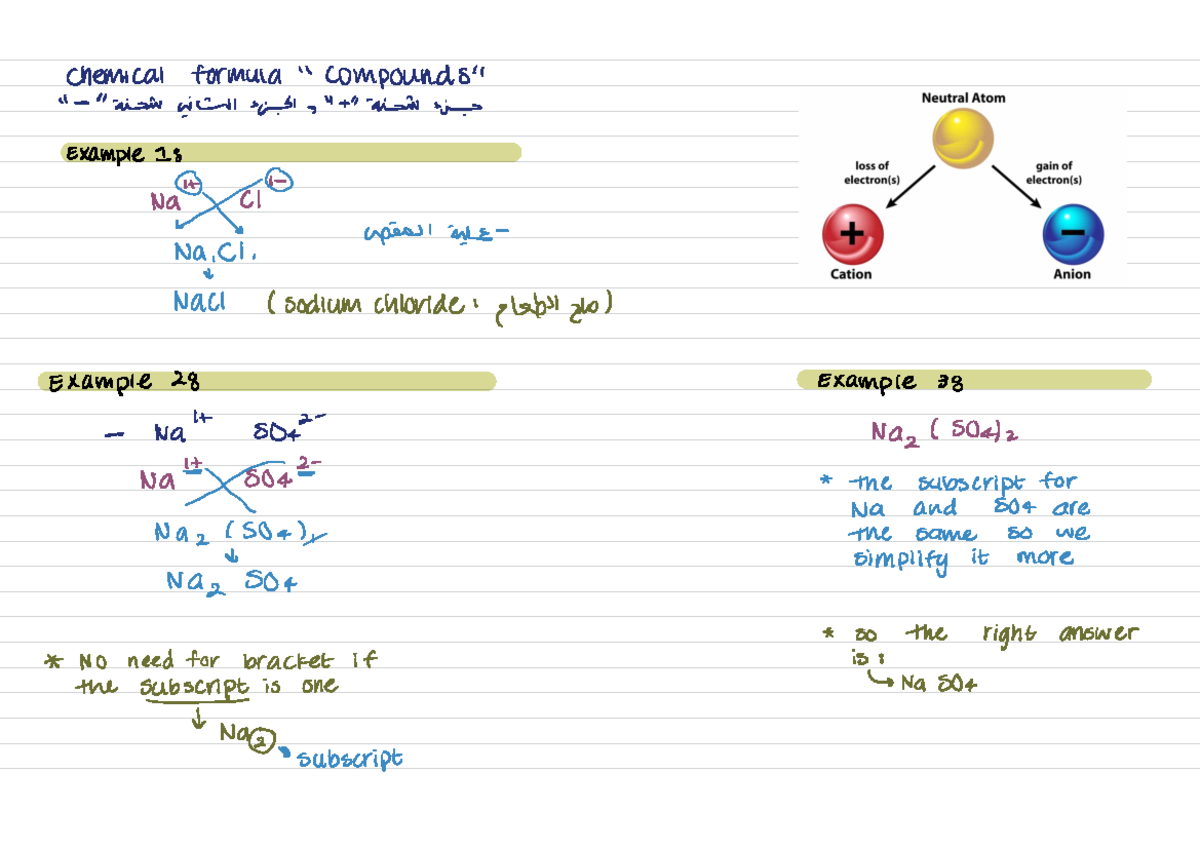 Chemical formula "Compounds"
جزء شحنة "+" و الجزء الثاني شحنة "-"
Example 1:
Na¹⁺ Cl¹⁻
Na₁Cl₁
- عملية المقص
NaCl (sodium chloride: ملح الطعام)
Neutral Atom
loss of electron(s)
gain of electron(s)
+
−
Cation
Anion
Example 2:
– Na¹⁺ SO₄²⁻
Na¹⁺ SO₄²⁻
Na₂(SO₄)₁
Na₂SO₄
* No need for bracket if
the subscript is one
Na₂
subscript
Example 3:
Na₂(SO₄)₂
* the subscript for
Na and SO₄ are
the same so we
simplify it more
* so the right answer
is:
Na SO₄